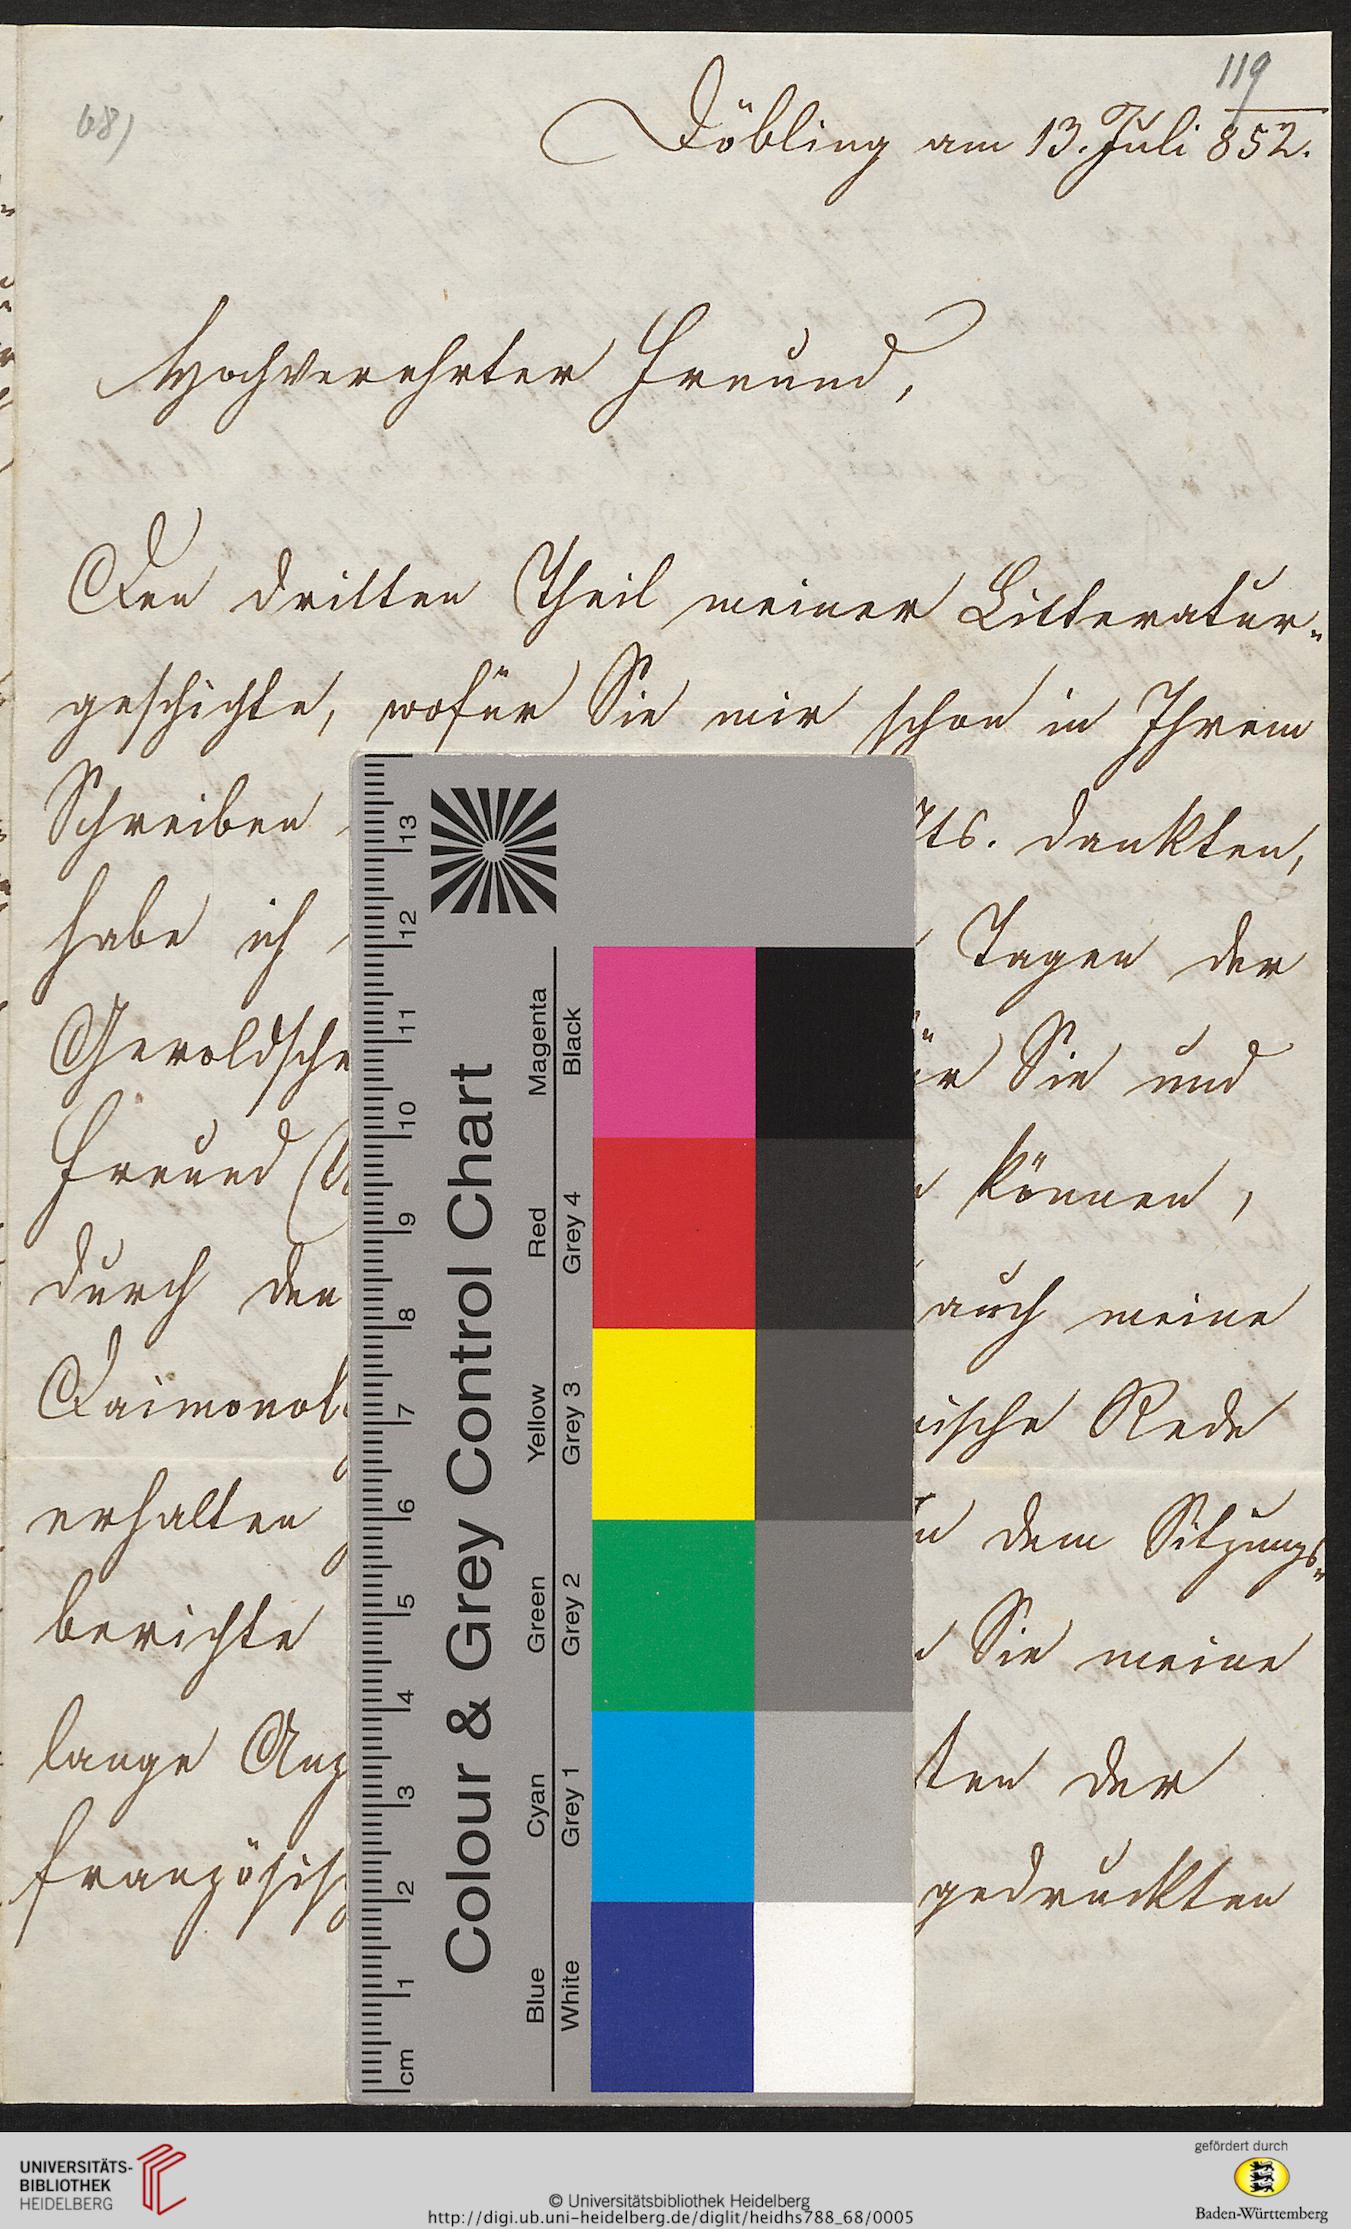 119
68)
Döbling am 13. Juli 852.
Hochverehrter Freund,
Den dritten Theil meiner Litteratur-
geschichte, wofür Sie mir schon in Ihrem
Schreiben ts. dankten,
habe ich Tagen der
Geroldsche Sie und
Freund können,
durch den auch meine
ische Rede
erhalten dem Sitzungs-
berichte Sie meine
lange Anz ten der
französisch gedruckten
Colour & Grey Control Chart
Blue Cyan Green Yellow Red Magenta
White Grey 1 Grey 2 Grey 3 Grey 4 Black
cm 1 2 3 4 5 6 7 8 9 10 11 12 13
UNIVERSITÄTS-
BIBLIOTHEK
HEIDELBERG
© Universitätsbibliothek Heidelberg
http://digi.ub.uni-heidelberg.de/diglit/heidhs788_68/0005
gefördert durch
Baden-Württemberg